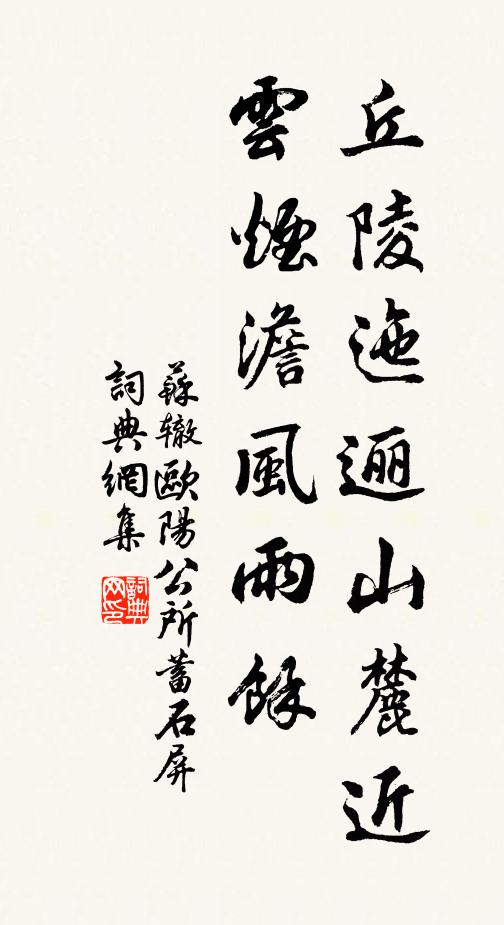 丘陵迤逦山麓近
雲煙澹風雨餘
蘇辙歐陽公所蓄石屏
詞典網集
詞典網印